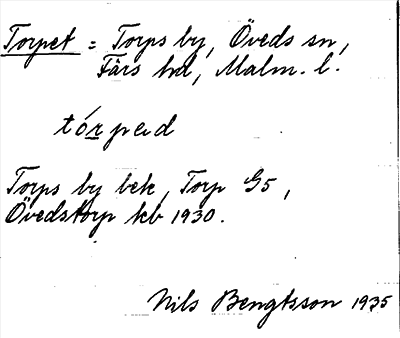 Torpet = Torps by, Öveds sn,
Färs hd, Malm. l.
tórpəd
Torps by bek, Torp G5,
Övedstorp kb 1930.
Nils Bengtsson 1935